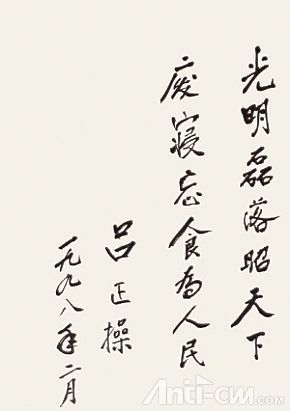 光明磊落昭天下
废寝忘食为人民
吕正操
一九九八年二月
Anti-cw.com